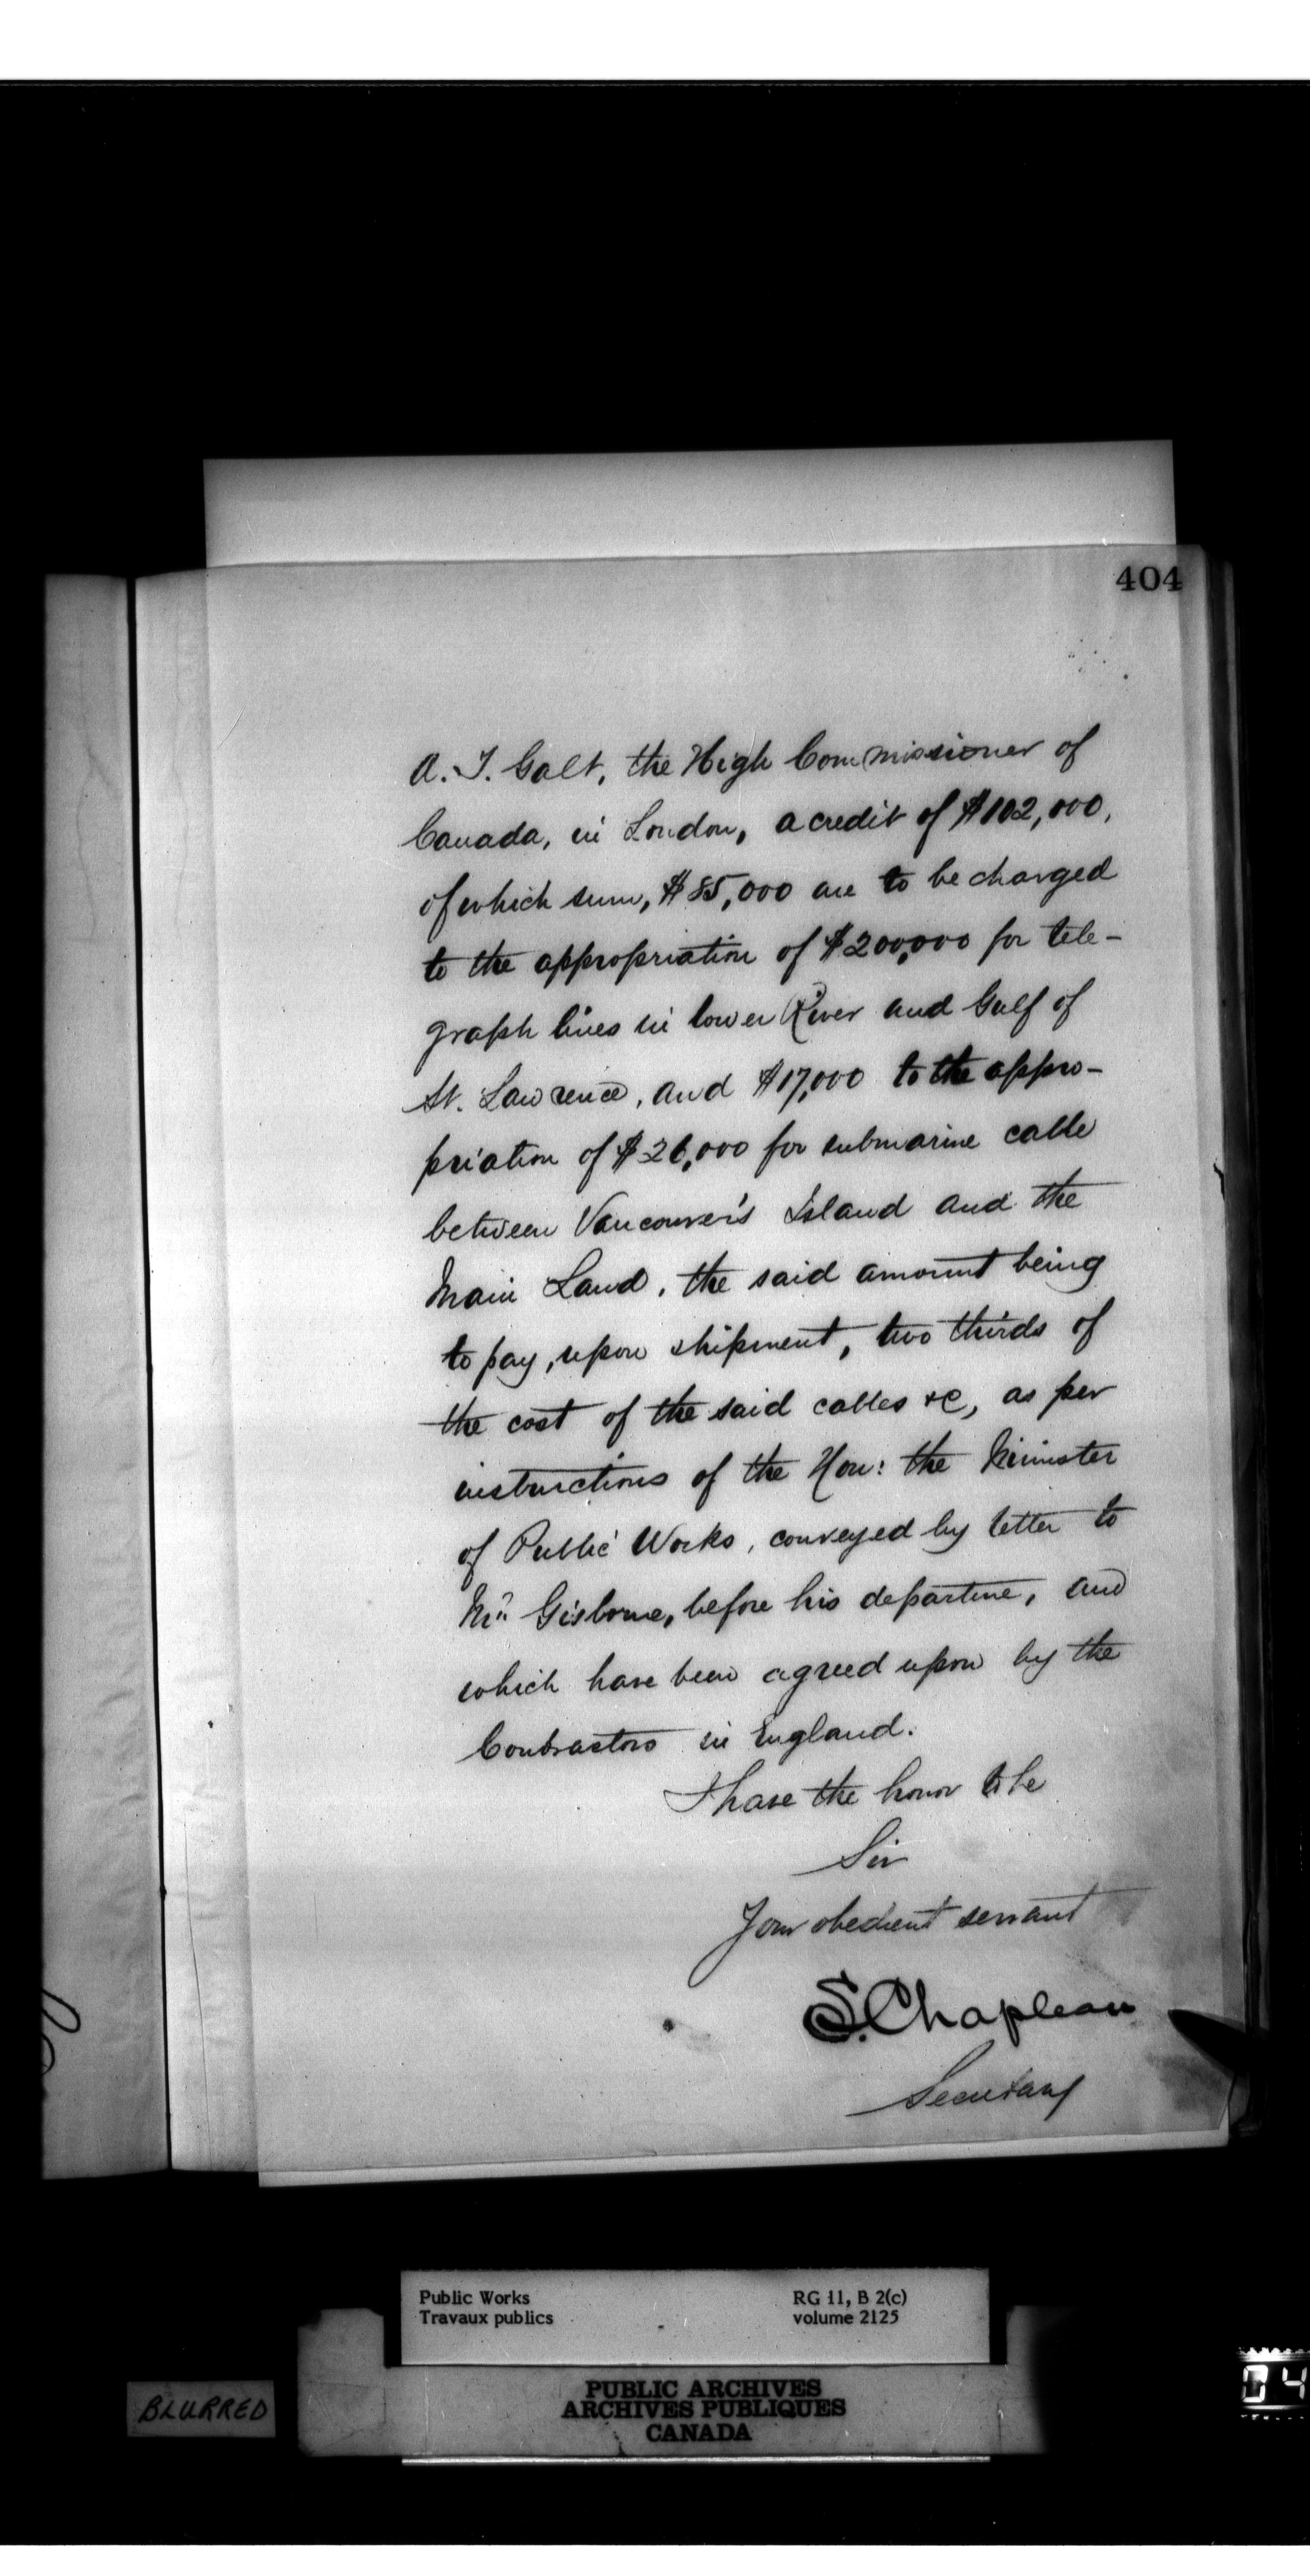 404
A. T. Galt, the High Commissioner of
Canada, in London, a credit of $102,000,
of which sum, $85,000 are to be charged
to the appropriation of $200,000 for tele-
graph lines in lower River and Gulf of
St. Lawrence, and $17,000 to the appro-
priation of $26,000 for submarine cable
between Vancouver's Island and the
Main Land, the said amount being
to pay, upon shipment, two thirds of
the cost of the said cables &c, as per
instructions of the Hon: the Minister
of Public Works, conveyed by letter to
Mr. Gisborne, before his departure, and
which have been agreed upon by the
Contractors in England.
I have the honor to be
Sir
Your obedient servant
S. Chapleau
Secretary
Public Works RG 11, B 2(c)
Travaux publics volume 2125
BLURRED
PUBLIC ARCHIVES
ARCHIVES PUBLIQUES
CANADA
04